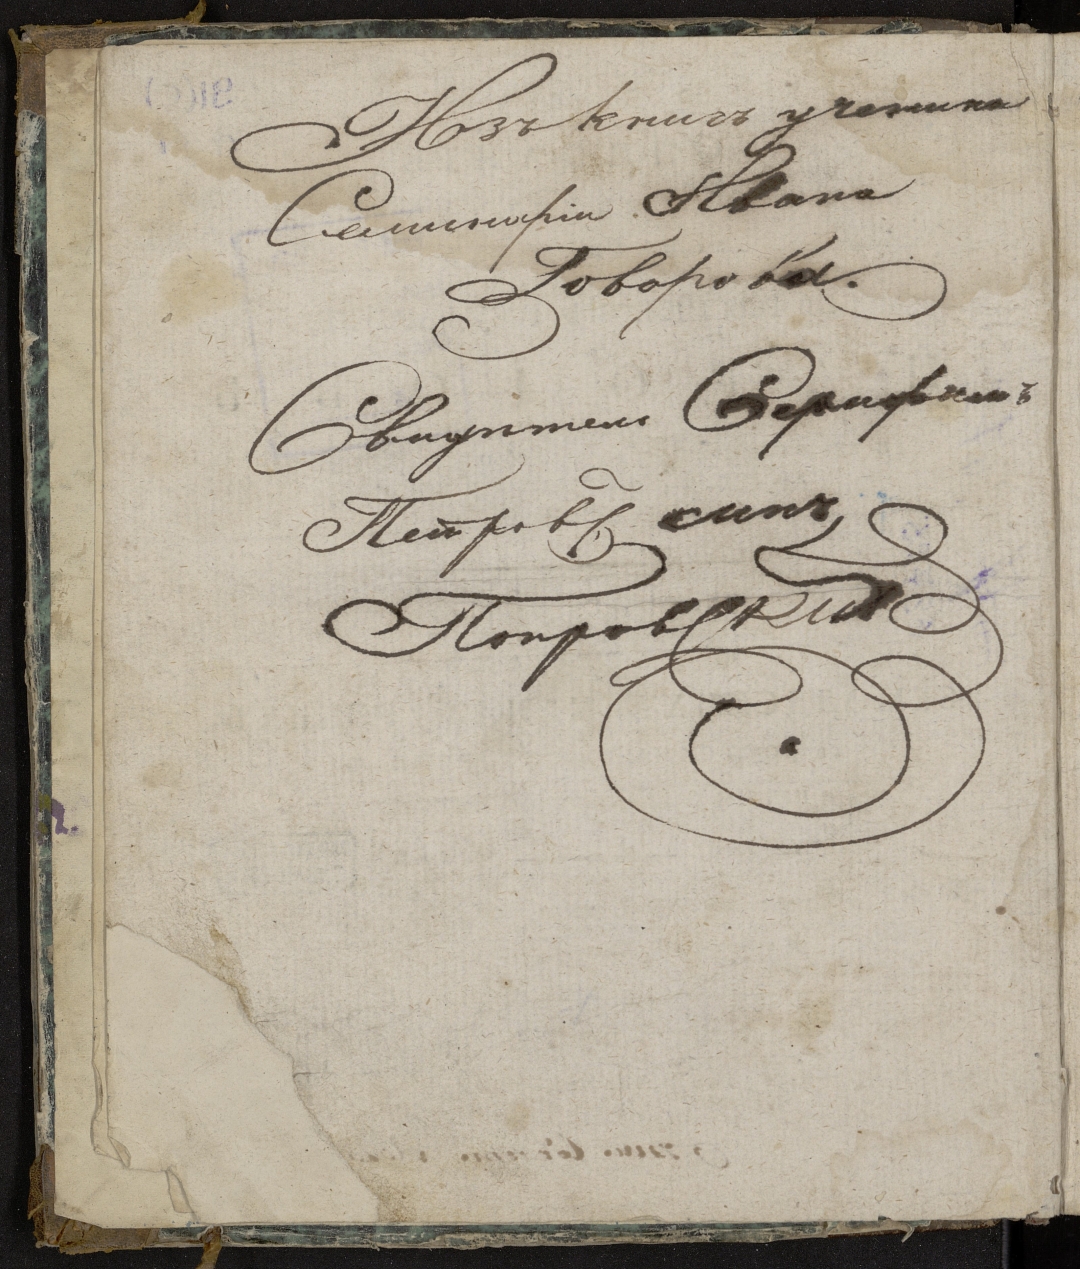 Изъ книгъ ученика
Семинаріи Ивана
Говорова.
Свидѣтель Серафимъ
Петровъ сынъ
Покровскій